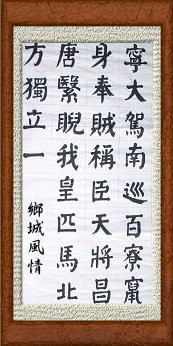 寧大駕南巡百寮竄
身奉賊稱臣天將昌
唐繄睨我皇匹馬北
方獨立一
鄉城風情